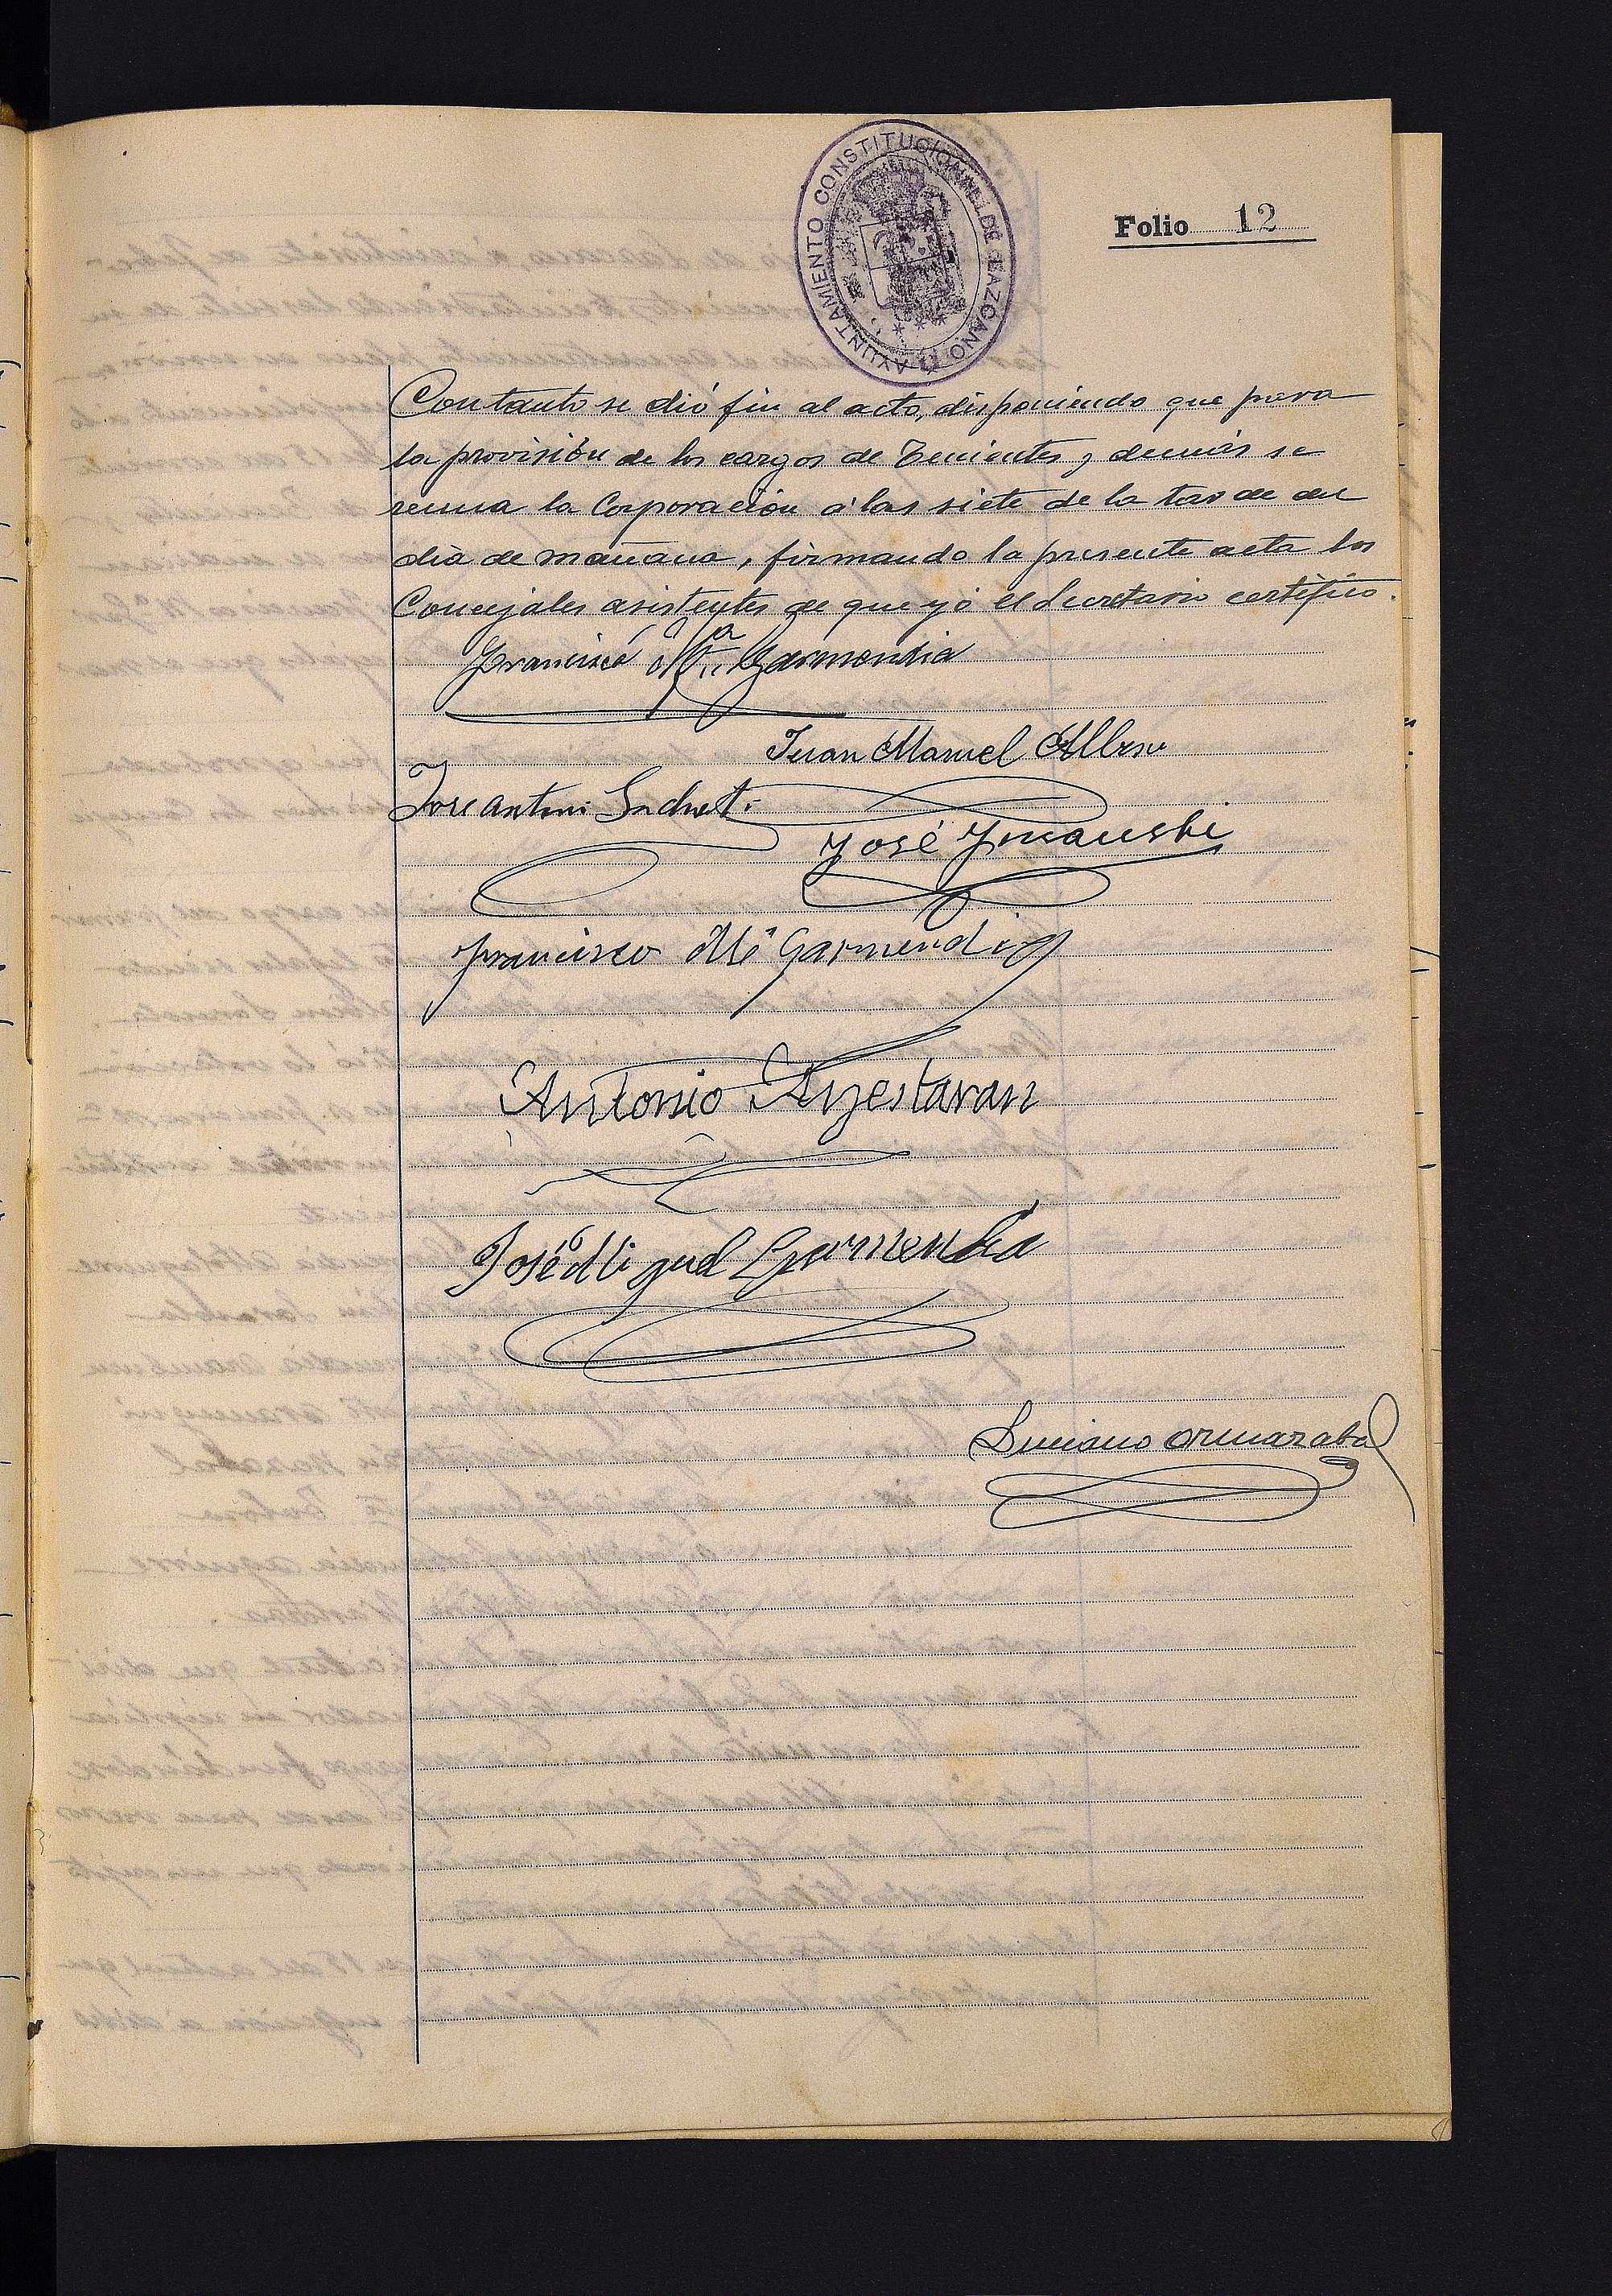 AYUNTAMIENTO CONSTITUCIONAL DE LAZCANO
Folio 12
Con tanto se dió fin al acto, disponiendo que para
la provisión de los cargos de Tenientes y demás se
reuna la Corporación á las siete de la tarde del
dia de mañana, firmando la presente acta los
Concejales asistentes de que yó el Secretario certifico.
Francisco Mª Garmendia
Juan Manuel
José Antonio
José
Francisco Mª Garmendia
Antonio Ayestaran
José Miguel Garmendia
Luciano Ormazabal